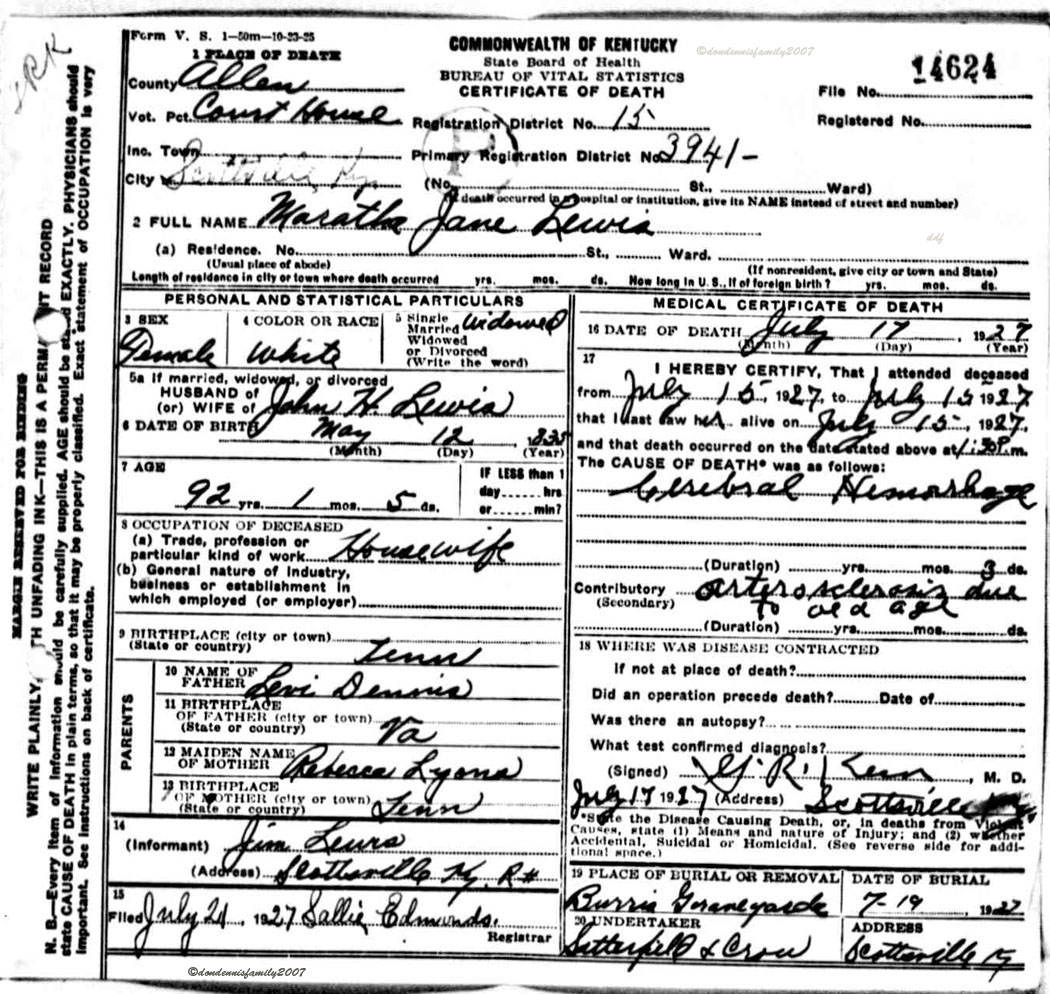 Form V. S. 1–50m–10-23-25
COMMONWEALTH OF KENTUCKY
©dondennisfamily2007
State Board of Health
BUREAU OF VITAL STATISTICS
CERTIFICATE OF DEATH
14624
File No.
Registered No.
1 PLACE OF DEATH
County Allen
Vot. Pct. Court House
Registration District No. 15
Inc. Town
Primary Registration District No. 3941-
City Scottsville, Ky.
(No. St., Ward)
(If death occurred in a hospital or institution, give its NAME instead of street and number)
2 FULL NAME Maratha Jane Lewis
ddf
(a) Residence. No. St., Ward.
(Usual place of abode) (If nonresident, give city or town and State)
Length of residence in city or town where death occurred yrs. mos. ds. How long in U. S., if of foreign birth? yrs. mos. ds.
PERSONAL AND STATISTICAL PARTICULARS
3 SEX
Female
4 COLOR OR RACE
White
5 Single
Married
Widowed
or Divorced
(Write the word)
Widowed
5a If married, widowed, or divorced
HUSBAND of
(or) WIFE of John H. Lewis
6 DATE OF BIRTH May 12, 1835
(Month) (Day) (Year)
7 AGE
92 yrs. 1 mos. 5 ds.
IF LESS than 1
day ...... hrs
or ...... min?
8 OCCUPATION OF DECEASED
(a) Trade, profession or
particular kind of work Housewife
(b) General nature of industry,
business or establishment in
which employed (or employer)
9 BIRTHPLACE (city or town)
(State or country) Tenn
PARENTS
10 NAME OF
FATHER Levi Dennis
11 BIRTHPLACE
OF FATHER (city or town)
(State or country) Va
12 MAIDEN NAME
OF MOTHER Rebecca Lyons
13 BIRTHPLACE
OF MOTHER (city or town)
(State or country) Tenn
14
(Informant) Jim Lewis
(Address) Scottsville Ky. R#
15
Filed July 21, 1927 Sallie Edmunds.
Registrar
MEDICAL CERTIFICATE OF DEATH
16 DATE OF DEATH July 17, 1927
(Month) (Day) (Year)
17
I HEREBY CERTIFY, That I attended deceased
from July 15, 1927, to July 15 1927,
that I last saw her alive on July 15, 1927,
and that death occurred on the date stated above at 1:30P.m.
The CAUSE OF DEATH* was as follows:
Cerebral Hemorhage
(Duration) yrs. mos. 3 ds.
Contributory arterosclerosis due
(Secondary) to old age
(Duration) yrs. mos. ds.
18 WHERE WAS DISEASE CONTRACTED
If not at place of death?
Did an operation precede death? Date of
Was there an autopsy?
What test confirmed diagnosis?
(Signed) M. D.
July 17 1927 (Address) Scottsville Ky
*State the Disease Causing Death, or, in deaths from Violent
Causes, state (1) Means and nature of Injury; and (2) whether
Accidental, Suicidal or Homicidal. (See reverse side for addi-
tional space.)
19 PLACE OF BURIAL OR REMOVAL
Burris Graveyarde
DATE OF BURIAL
7-19, 1927
20 UNDERTAKER
& Crow
ADDRESS
Scottsville Ky
MARGIN RESERVED FOR BINDING
WRITE PLAINLY, WITH UNFADING INK—THIS IS A PERMANENT RECORD
N. B.—Every item of information should be carefully supplied. AGE should be stated EXACTLY. PHYSICIANS should
state CAUSE OF DEATH in plain terms, so that it may be properly classified. Exact statement of OCCUPATION is very
important. See instructions on back of certificate.
©dondennisfamily2007